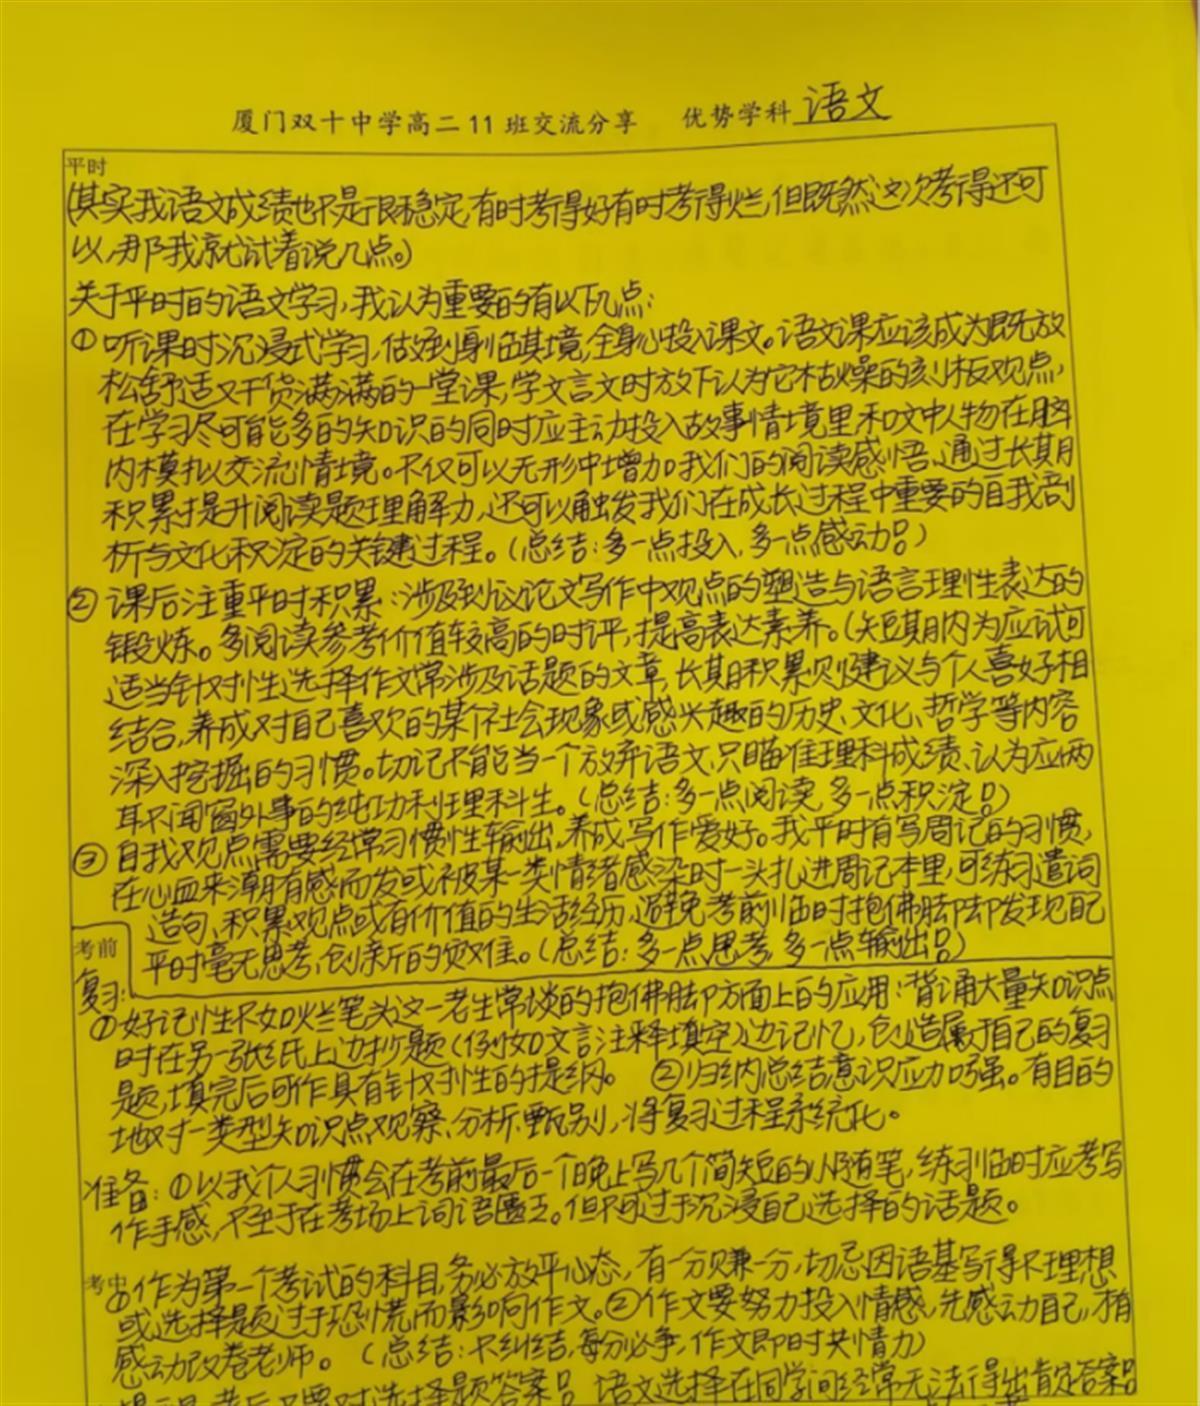 厦门双十中学高二11班交流分享 优势学科 语文
平时
(其实我语文成绩也不是很稳定,有时考得好有时考得烂,但既然这次考得还可
以,那我就试着说几点。)
关于平时的语文学习,我认为重要的有以下几点:
① 听课时沉浸式学习,做到身临其境,全身心投入课文。语文课应该成为既放
松舒适又干货满满的一堂课,学文言文时放下认为它枯燥的刻板观点,
在学习尽可能多的知识的同时应主动投入故事情境里和文中人物在脑
内模拟交流情境。不仅可以无形中增加我们的阅读感悟、通过长期
积累提升阅读题理解力,还可以触发我们在成长过程中重要的自我剖
析与文化积淀的关键过程。(总结:多一点投入,多一点感动!)
② 课后注重平时积累:涉及到议论文写作中观点的塑造与语言理性表达的
锻炼。多阅读参考价值较高的时评,提高表达素养。(短期内为应试可
适当针对性选择作文常涉及话题的文章,长期积累则建议与个人喜好相
结合,养成对自己喜欢的某个社会现象或感兴趣的历史、文化、哲学等内容
深入挖掘的习惯。切记不能当一个放弃语文,只瞄准理科成绩、认为应两
耳不闻窗外事的纯功利理科生。(总结:多一点阅读,多一点积淀!)
③ 自我观点需要经常习惯性输出,养成写作爱好。我平时有写周记的习惯,
在心血来潮有感而发或被某一类情绪感染时一头扎进周记本里,可练习遣词
造句、积累观点或有价值的生活经历,避免考前临时抱佛脚却发现自己
平时毫无思考、创新的灾难。(总结:多一点思考,多一点输出!)
考前
复习:
①好记性不如烂笔头这一老生常谈的抱佛脚方面上的应用:背诵大量知识点
时在另一张纸上边抄题(例如文言注释填空)边记忆,创造属于自己的复习
题,填完后可作具有针对性的提纲。 ②归纳总结意识应加强。有目的
地对一类型知识点观察、分析、甄别,将复习过程系统化。
准备:①以我个人习惯会在考前最后一个晚上写几个简短的小随笔,练习临时应考写
作手感,不至于在考场上词语匮乏。但不可过于沉浸自己选择的话题。
考中
①作为第一个考试的科目,务必放平心态,有一分赚一分,切忌因语基写得不理想
或选择题过于恐慌而影响作文。②作文要努力投入情感,先感动自己,才有
感动改卷老师。(总结:不纠结,每分必争,作文即时共情力)
考后不要对选择题答案!语文选择在同学间经常无法得出肯定答案!